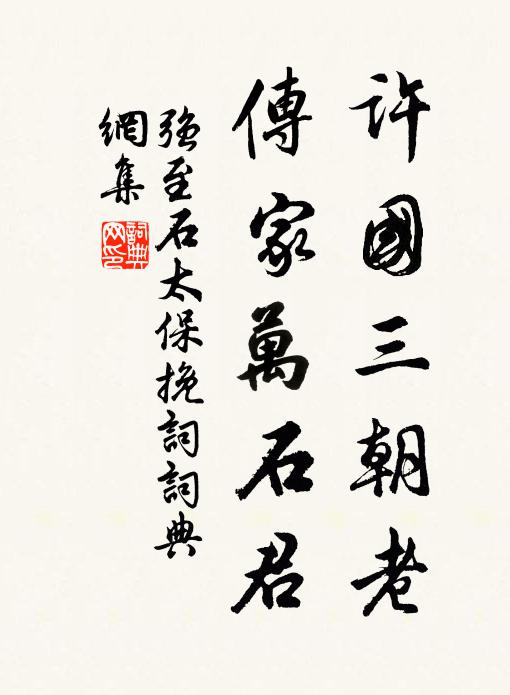 許國三朝老
傳家萬石君
強至石太保挽詞詞典
網集
詞典
网印